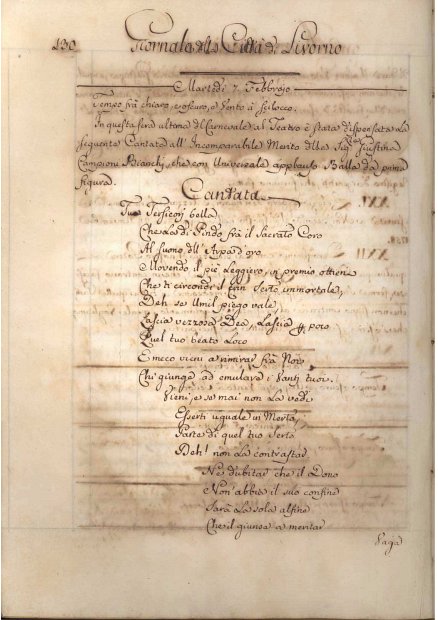 130 Giornale della Città di Livorno
Martedì 7. Febbrajo
Tempo frà chiaro, e oscuro, e Vento à scilocco.
In questa sera ultima di Carnevale al Teatro è stata dispensata La
seguente Cantata all' Incomparabile Merito della Sig.ra Giustina
Campioni Bianchi, che con Universale applauso Balla da prima
figura.
Cantata
Tu ò Tersicore bella
Che là di Pindo frà il Sacrato Coro
Al suono dell'Arpa d'oro
Movendo il piè Leggiero, in premio ottieni
Che ti circondi il Crin Serto immortale,
Deh se Umil priego vale
Lascia vezzosa Dea, Lascia p poco
Quel tuo beato Loco
E meco vieni a rimirar frà Noi
Chi giunge ad emulare i Vanti tuoi.
Vieni, e se mai non La vedi
Esserti uguale in Merto,
Parte di quel tuo Serto
Deh! non La contrastar
Nè dubitar che il Dono
Non abbia il suo confine
Sarà La sola alfine
Che il giunga a meritar
Vaga